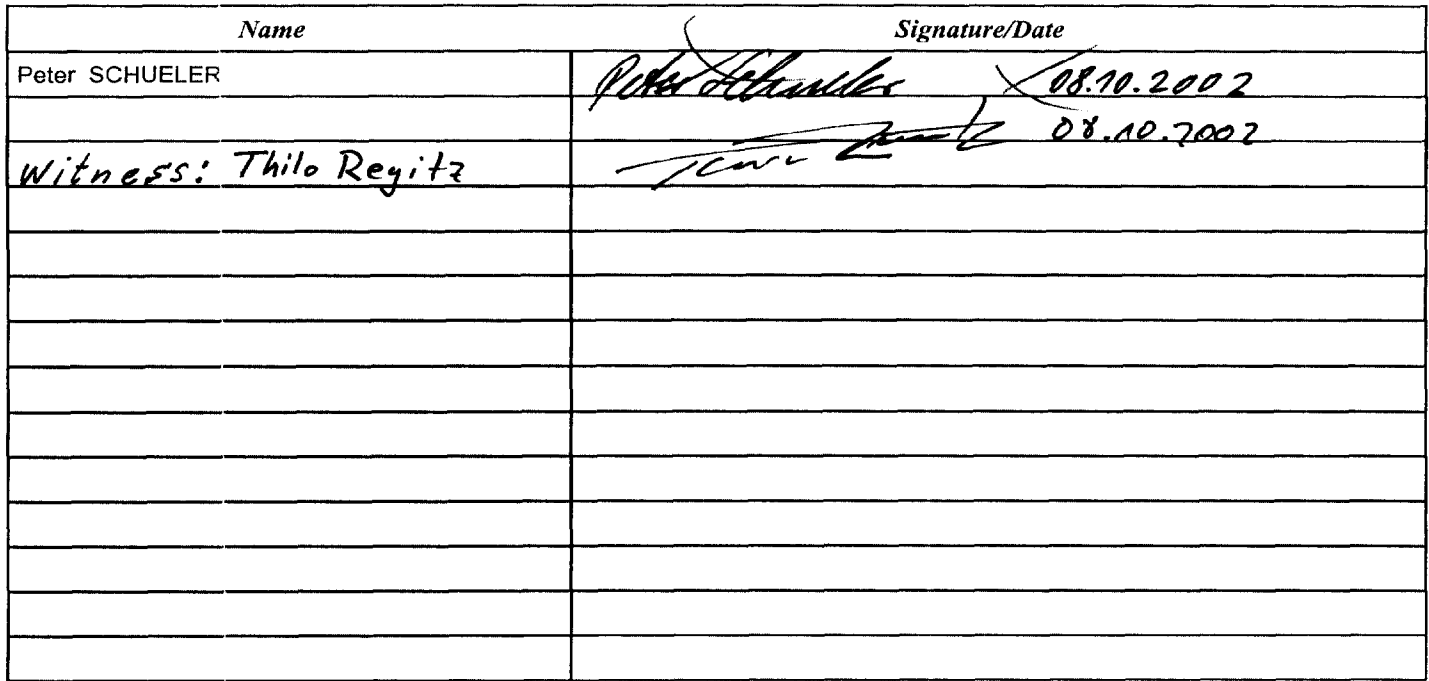 Name Signature/Date
Peter SCHUELER Peter Schueler 08.10.2002
08.10.2002
Witness: Thilo Regitz